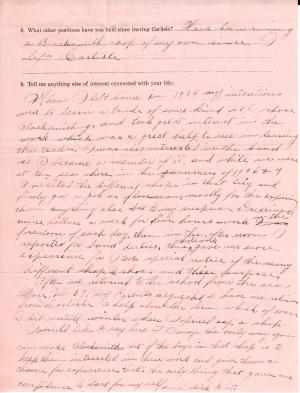 8. What other positions have you held since leaving Carlisle? Have been running
a Blacksmith shop of my own since
left Carlisle
9. Tell me anything else of interest connected with your life:
When I left home in my intentions
were to learn a trade of some kind so I chose
Blacksmithing, and took great interest in the
work which was a great help to me in learning
the trade. I was also interested in the band
so I became a member of it, and while we were
at the sea shore in the summers of 1906 & 7
I visited the different shops in that city and
finely got a job as floorman, mostly for the experi
ence than anything else, for I was surprised I received
nine dollars a week for four hours work in the
forenoon of each day, then in the afternoon I
reported for band duties, this gave me more
experience for I took special notice of the many
different shops & shoes, and their purposes.
After we returned to the school from the sea
shore, in 07, my Parents requested to have me return
home to help about the farm, which of course
I did until winter when I opened up a shop.
I would like to say here if I may the best way you
can make Blacksmiths out of the boys in that shop is to
keep them interested in their work and give them a
chance for experience that's the only thing that gave me
confidence to start for my self and stick to it.